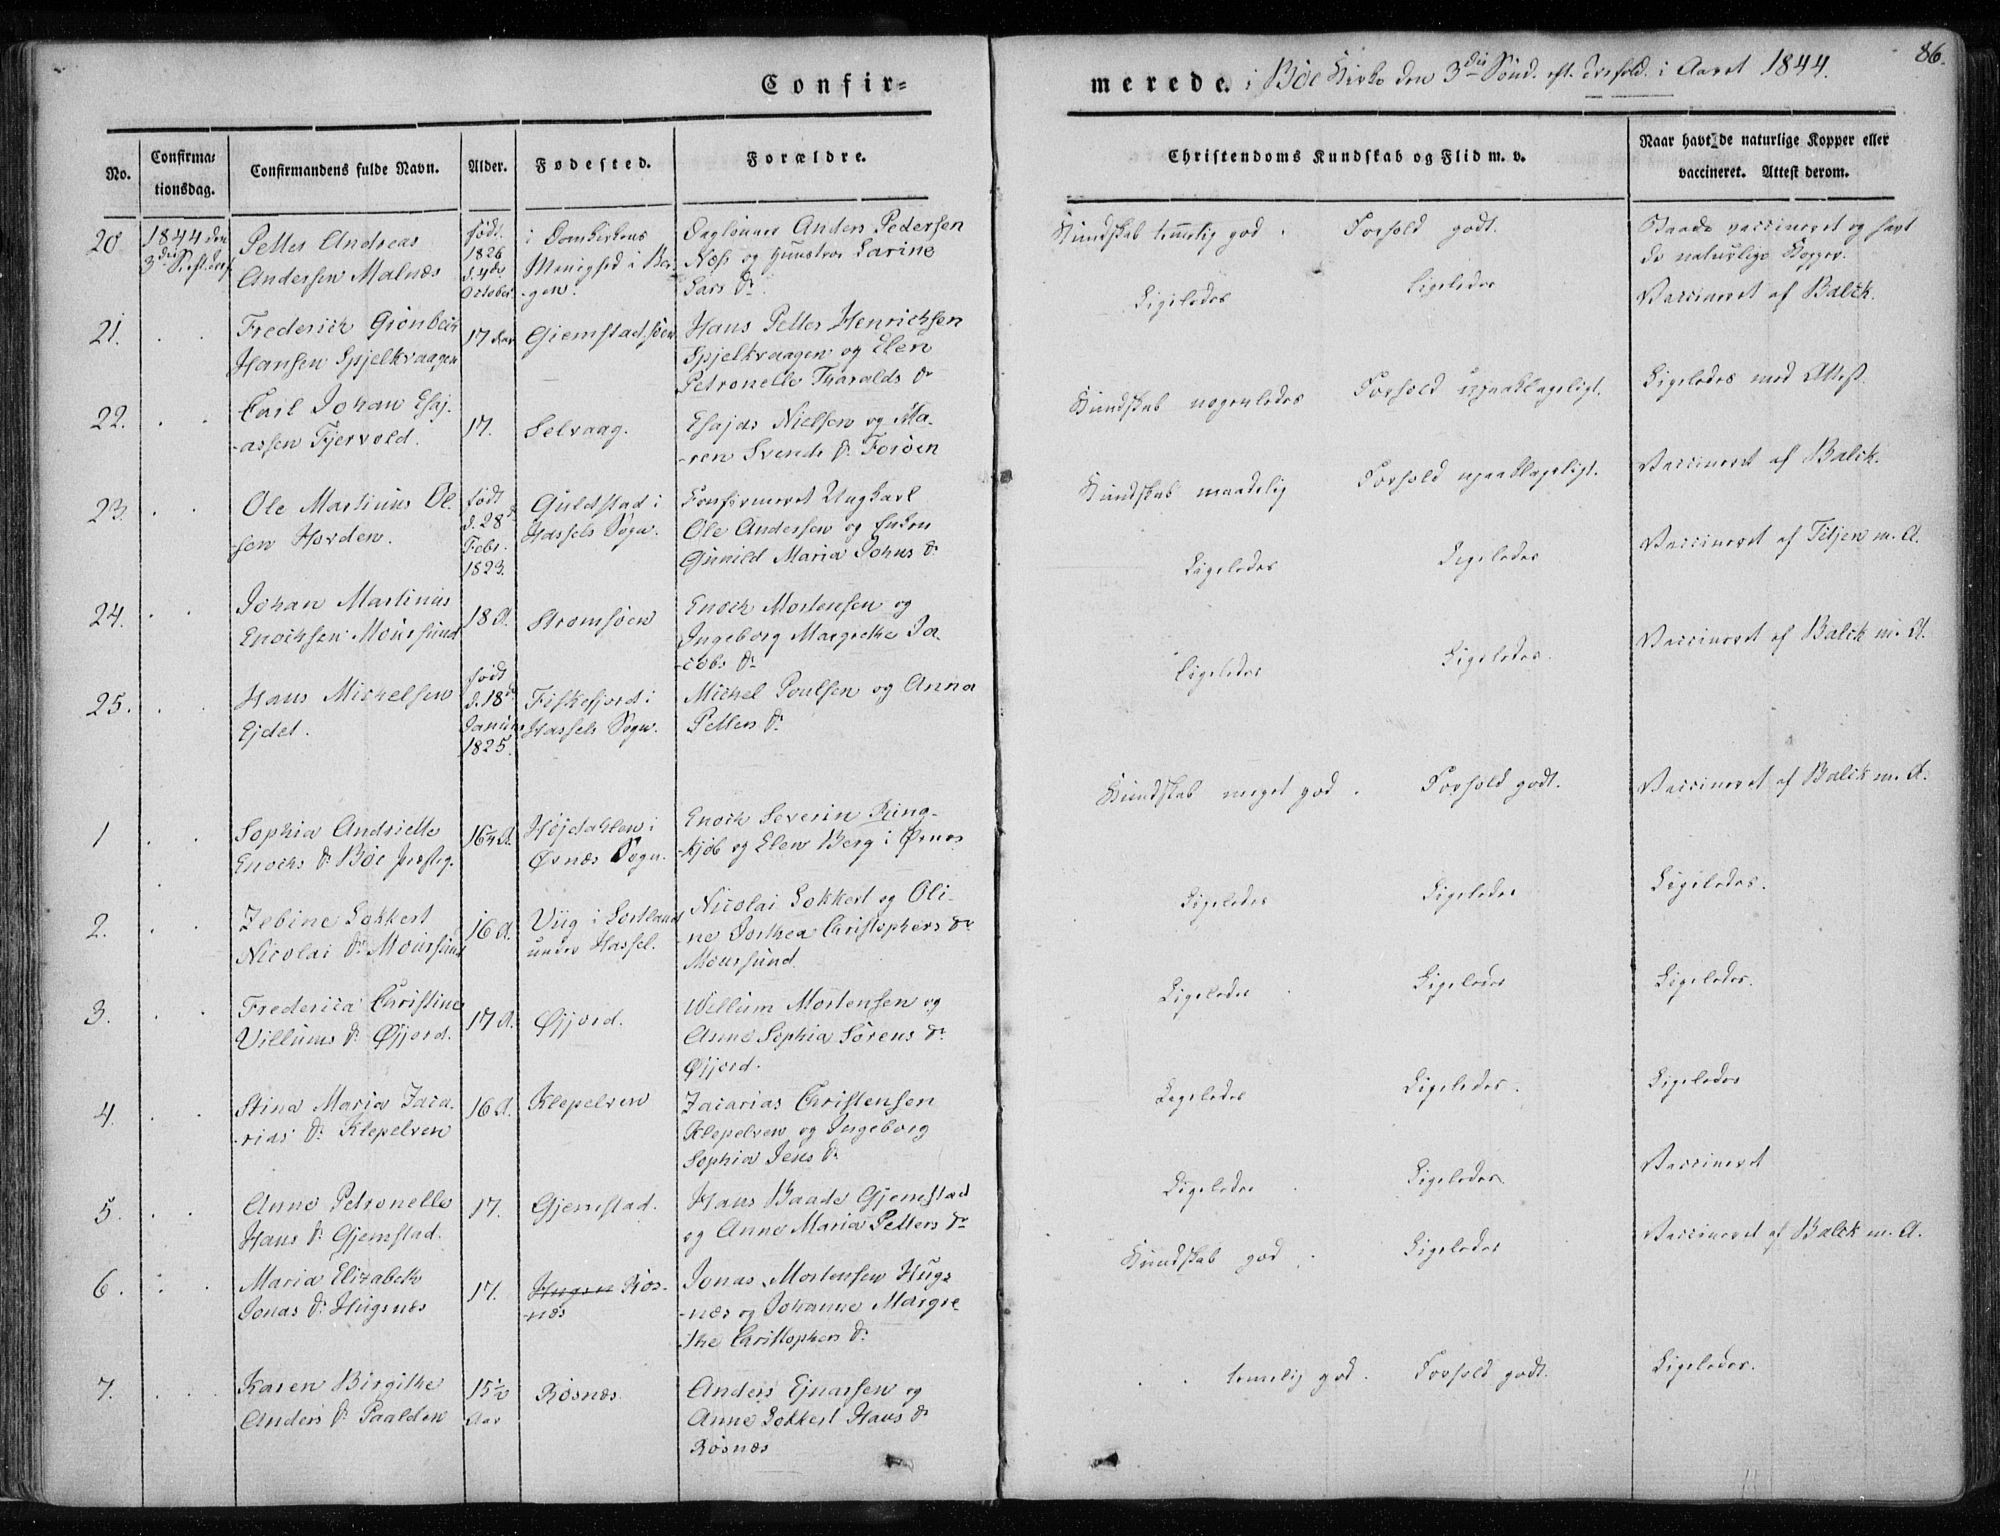 86.
Confirmerede. i Bøe Kirke den 3die Sønd. eft. Trefold. i Aaret 1844.
No. Confirmationsdag. Confirmandens fulde Navn. Alder. Fødested. Forældre. Christendoms Kundskab og Flid m. v. Naar havt de naturlige Kopper eller vaccineret. Attest derom.
20 1844 den 3die S. eft. Tref.
Petter Andreas
Andersen Malnæs
født 1826 d. 4de October
i Domkirkens
Menighed i Ber-
gen.
Daglønner Anders Pedersen
Næss og Hunstroe Larine
Lars Dr.
Kundskab temmelig god. Forhold godt.
Baade vaccineret og havt
de naturlige Kopper.
21. Frederich Grönbech
Hansen Spjelkvaagen
17 Aar
Giemstadsøen
Hans Petter Henrichsen
Spjelkvaagen og Elen
Petronelle Tharalds Dr
Ligeledes Ligeledes
Vaccineret af Balck.
22. Carl Johan Esaj-
assen Fjervold.
17.
Selvaag.
Esajas Nielsen og Ma-
ren Svends Dr. Forøen
Kundskab nogenledes Forhold upaaklageligt.
Ligeledes med Attest.
23. Ole Martinus Ol-
sen Horden.
født d. 28de Febr. 1823.
Guldstad i
Hassels Sogn.
Confirmeret Ungkarl
Ole Andersen og Enken
Gunild Maria Johns Dr
Kundskab maadelig Forhold upaaklageligt.
Vaccineret af Balck.
24. Johan Martinus
Enochsen Moursund
18 A.
Stromsøen
Enoch Mortensen og
Ingeborg Margrethe Ja-
cobs Dr
Ligeledes Ligeledes
Vaccineret af Tetjen m. A.
25. Hans Michelsen
Ejdet.
født d. 18de Januar 1825.
Fiskefjord i
Hassels Sogn.
Michel Poulsen og Anna
Petters Dr
Ligeledes Ligeledes.
Vaccineret af Balck m. A.
1 Sophia Andriette
Enochs Dr Bøe Præsteg.
16¼ A.
Højdahlen i
Øxnæs Sogn.
Enoch Severin Ring-
kjøb og Elen Berg i Øxnæs
Kundskab meget god. Forhold godt.
Vaccineret af Balck m. A.
2. Zebine Lokkert
Nicolai Dr. Moursund
16 A.
Viig i Sortland
under Hassel.
Nicolai Lokkert og Oli-
ne Dorthea Christophers Dr
Moursund
Ligeledes Ligeledes
Ligeledes.
3. Frederica Christine
Villums Dr. Øfjord.
17 A.
Øfjord.
Willum Mortensen og
Anne Sophia Sørens Dr.
Øfjord.
Ligeledes Ligeledes
Ligeledes.
4. Stina Maria Zaca-
rias Dr. Klepelven
16 A.
Klepelven
Zacarias Christensen
Klepelven og Ingeborg
Sophia Jens Dr
Ligeledes Ligeledes.
Ligeledes
5. Anne Petronelle
Hans Dr. Gjemstad.
17.
Gjemstad.
Hans Baade Gjemstad
og Anne Maria Petters Dr
Ligeledes Ligeledes.
Vaccineret
6. Maria Elizabeth
Jonas Dr Hugsnæs
17.
Hugsn Røs-
næs
Jonas Mortensen Hugs-
næs og Johanne Margre-
the Christophers Dr.
Kundskab god. Ligeledes
Vaccineret af Balck m. A.
7. Karen Birgithe
Anders Dr Paalden
15½ Aar
Røsnæs.
Anders Ejnarsen og
Anne Lokkert Hans Dr
Røsnæs
temelig god. Forhold godt.
Ligeledes.